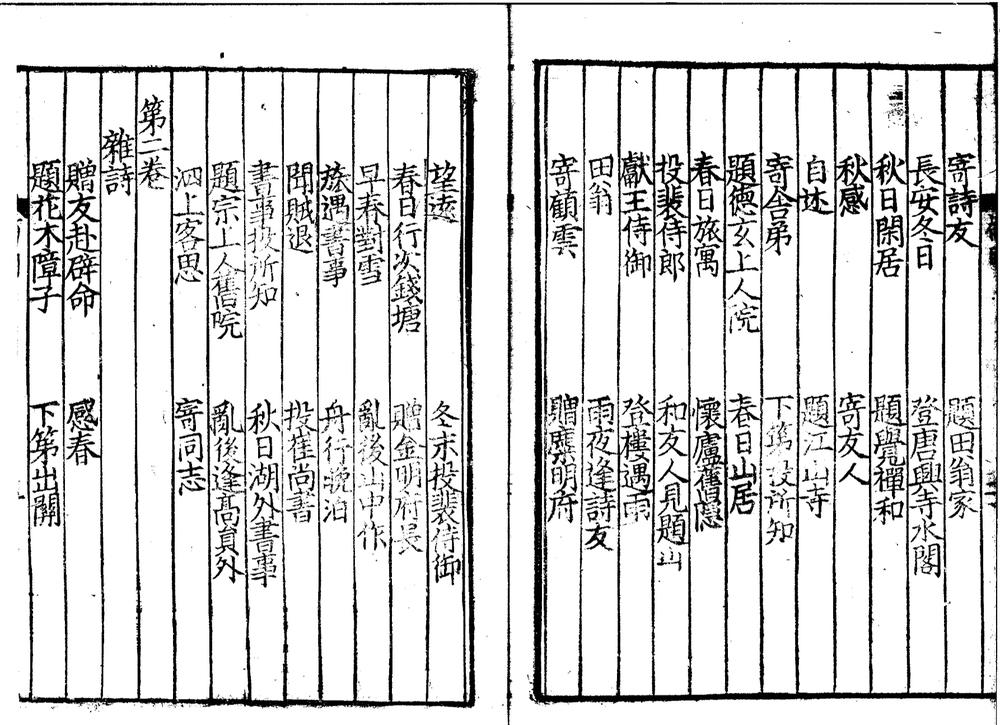 寄詩友　題田翁家
長安冬日　登唐興寺水閣
秋日閑居　題覺禪和
秋感　寄友人
自述　題江山寺
寄舍弟　下第投所知
題德玄上人院　春日山居
春日旅寓　懷廬舊隱
投裴侍郎　和友人見題山
獻王侍御　登樓遇雨
田翁　雨夜逢詩友
寄顧雲　贈龐明府
望遠　冬末投裴侍御
春日行次錢塘　贈金明府長
早春對雪　亂後山中作
旅遇書事　舟行晚泊
聞賊退　投崔尚書
書事投所知　秋日湖外書事
題宗上人舊院　亂後逢高員外
泗上客思　寄同志
第二卷
雜詩
贈友赴辟命　感春
題花木障子　下第出關